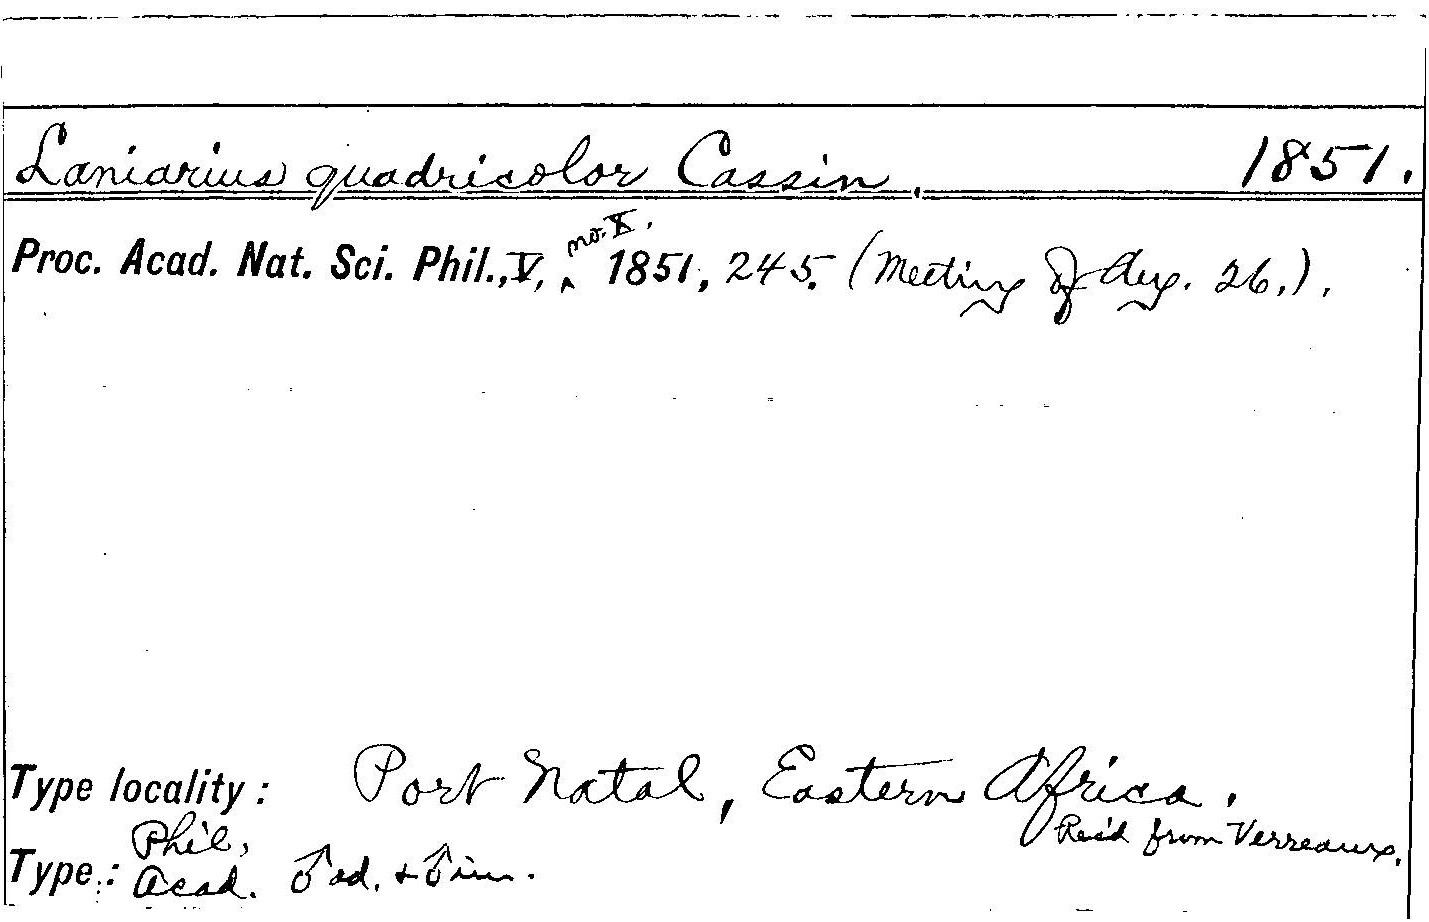 Laniarius quadricolor Cassin. 1851.
Proc. Acad. Nat. Sci. Phil., V, no. X. 1851, 245. (Meeting of Aug. 26.).
Type locality: Port Natal, Eastern Africa.
Rec'd from Verreaux.
Type: Phil. Acad. ♂ ad. + ♂ im.